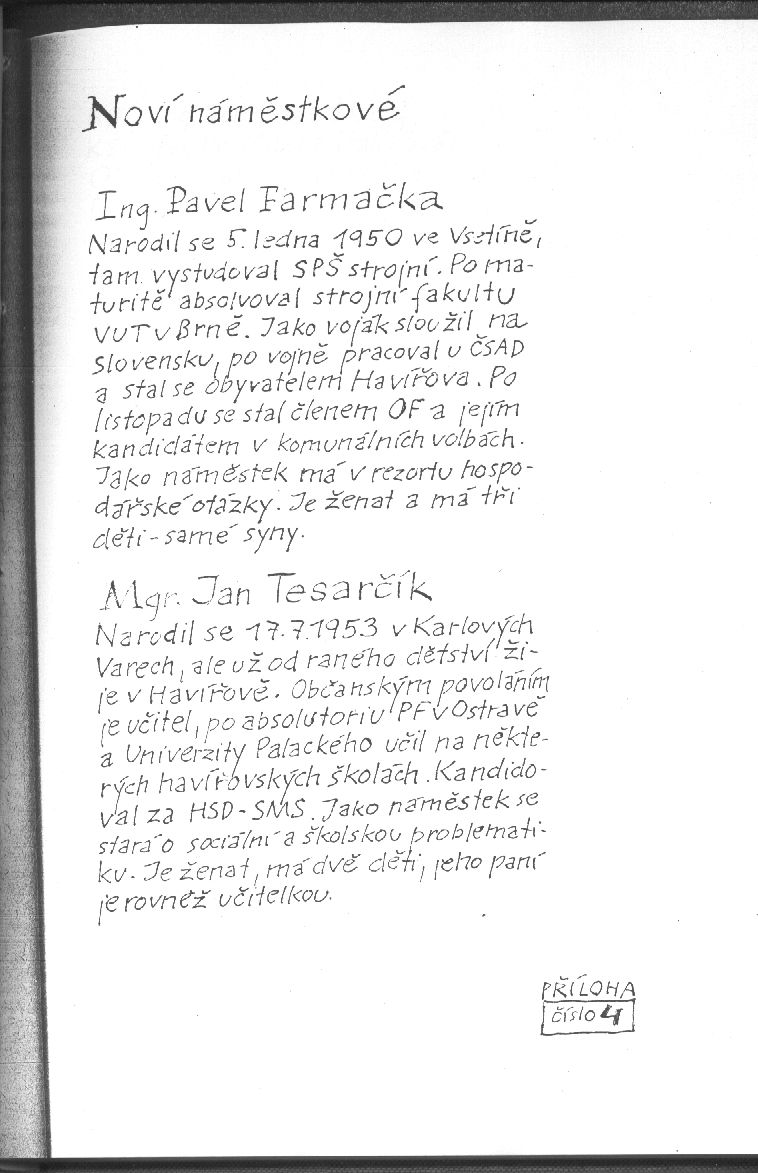 Noví náměstkové
Ing. Pavel Farmačka
Narodil se 5. ledna 1950 ve Vsetíně,
tam vystudoval SPŠ strojní. Po ma-
turitě absolvoval strojní fakultu
VUT v Brně. Jako voják sloužil na
Slovensku, po vojně pracoval u ČSAD
a stal se obyvatelem Havířova. Po
listopadu se stal členem OF a jejím
kandidátem v komunálních volbách.
Jako náměstek má v rezortu hospo-
dářské otázky. Je ženat a má tři
děti - samé syny.
Mgr. Jan Tesarčík
Narodil se 17.7.1953 v Karlových
Varech, ale už od raného dětství ži-
je v Havířově. Občanským povoláním
je učitel, po absolutoriu PF v Ostravě
a Univerzity Palackého učil na někte-
rých havířovských školách. Kandido-
val za HSD-SMS. Jako náměstek se
stará o sociální a školskou problemati-
ku. Je ženat, má dvě děti, jeho paní
je rovněž učitelkou.
PŘÍLOHA
číslo 4